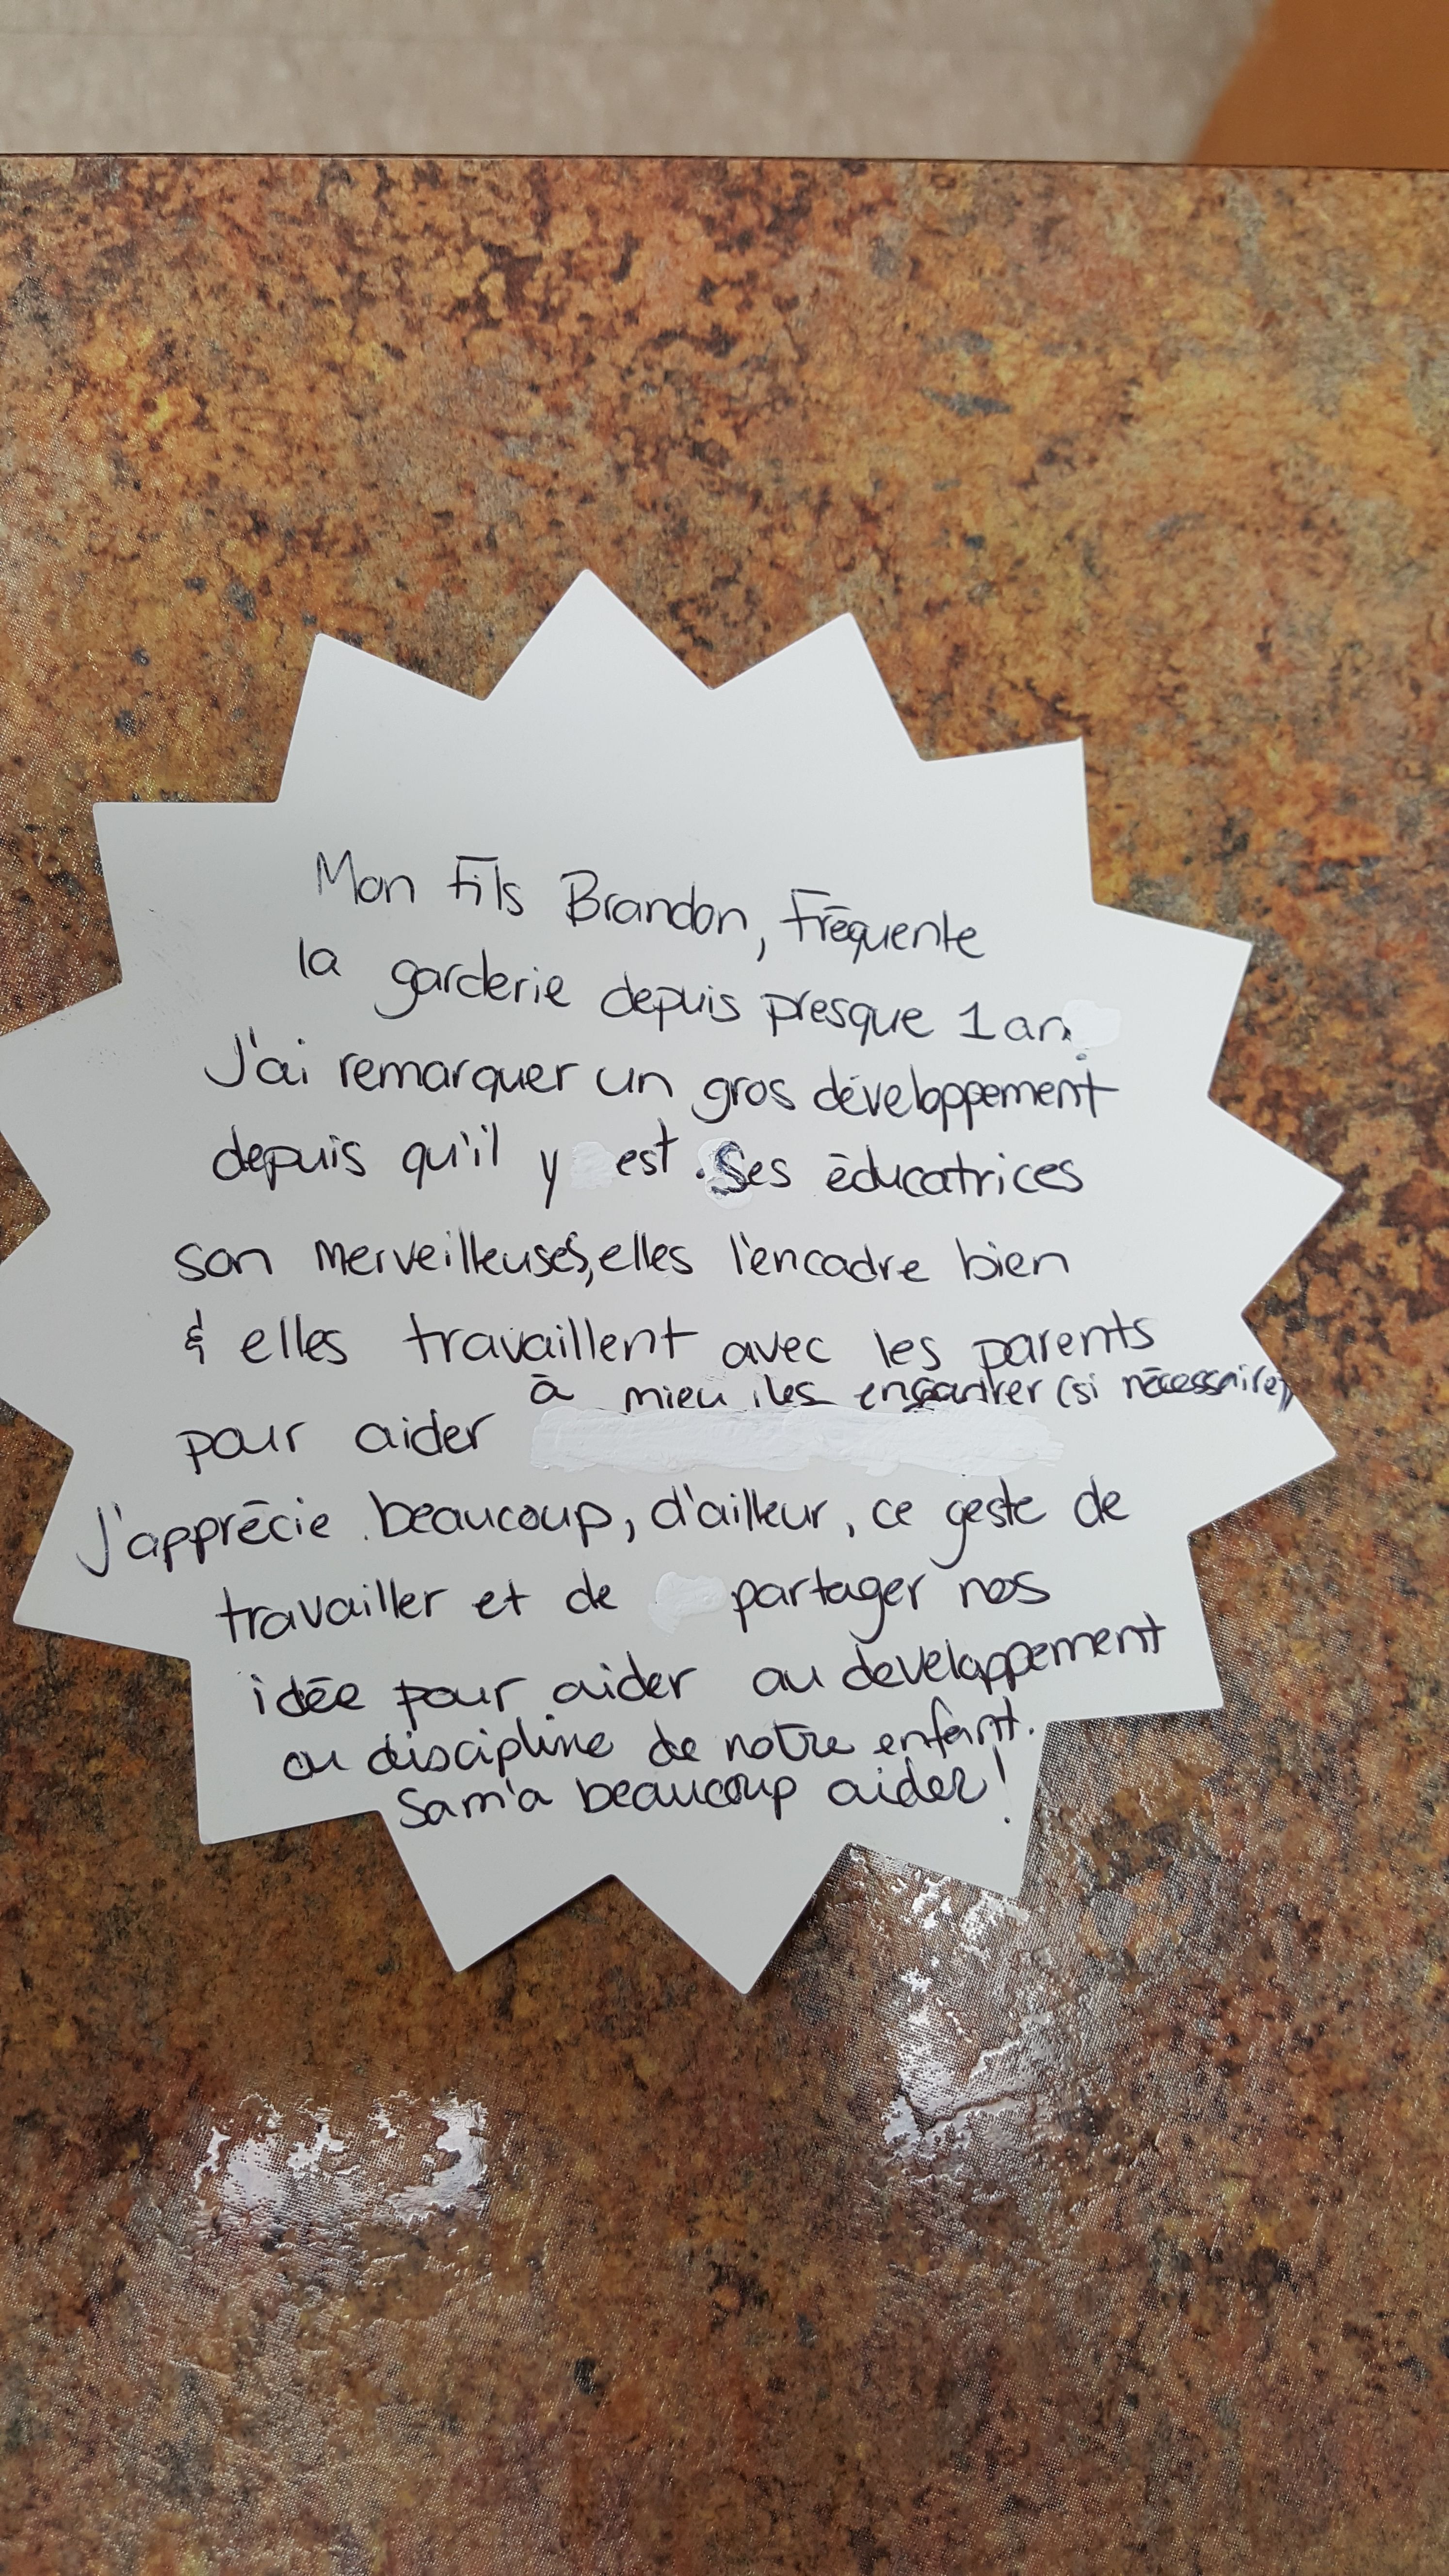 Mon Fils Brandon, Fréquente
la garderie depuis presque 1 an.
J'ai remarquer un gros développement
depuis qu'il y est. Ses éducatrices
son merveilleuses, elles l'encadre bien
& elles travaillent avec les parents
à mieu les encadrer (si nécessaire)
pour aider
J'apprécie beaucoup, d'ailleur, ce geste de
travailler et de partager nos
idée pour aider au developpement
ou discipline de notre enfant.
Sa m'a beaucoup aider!